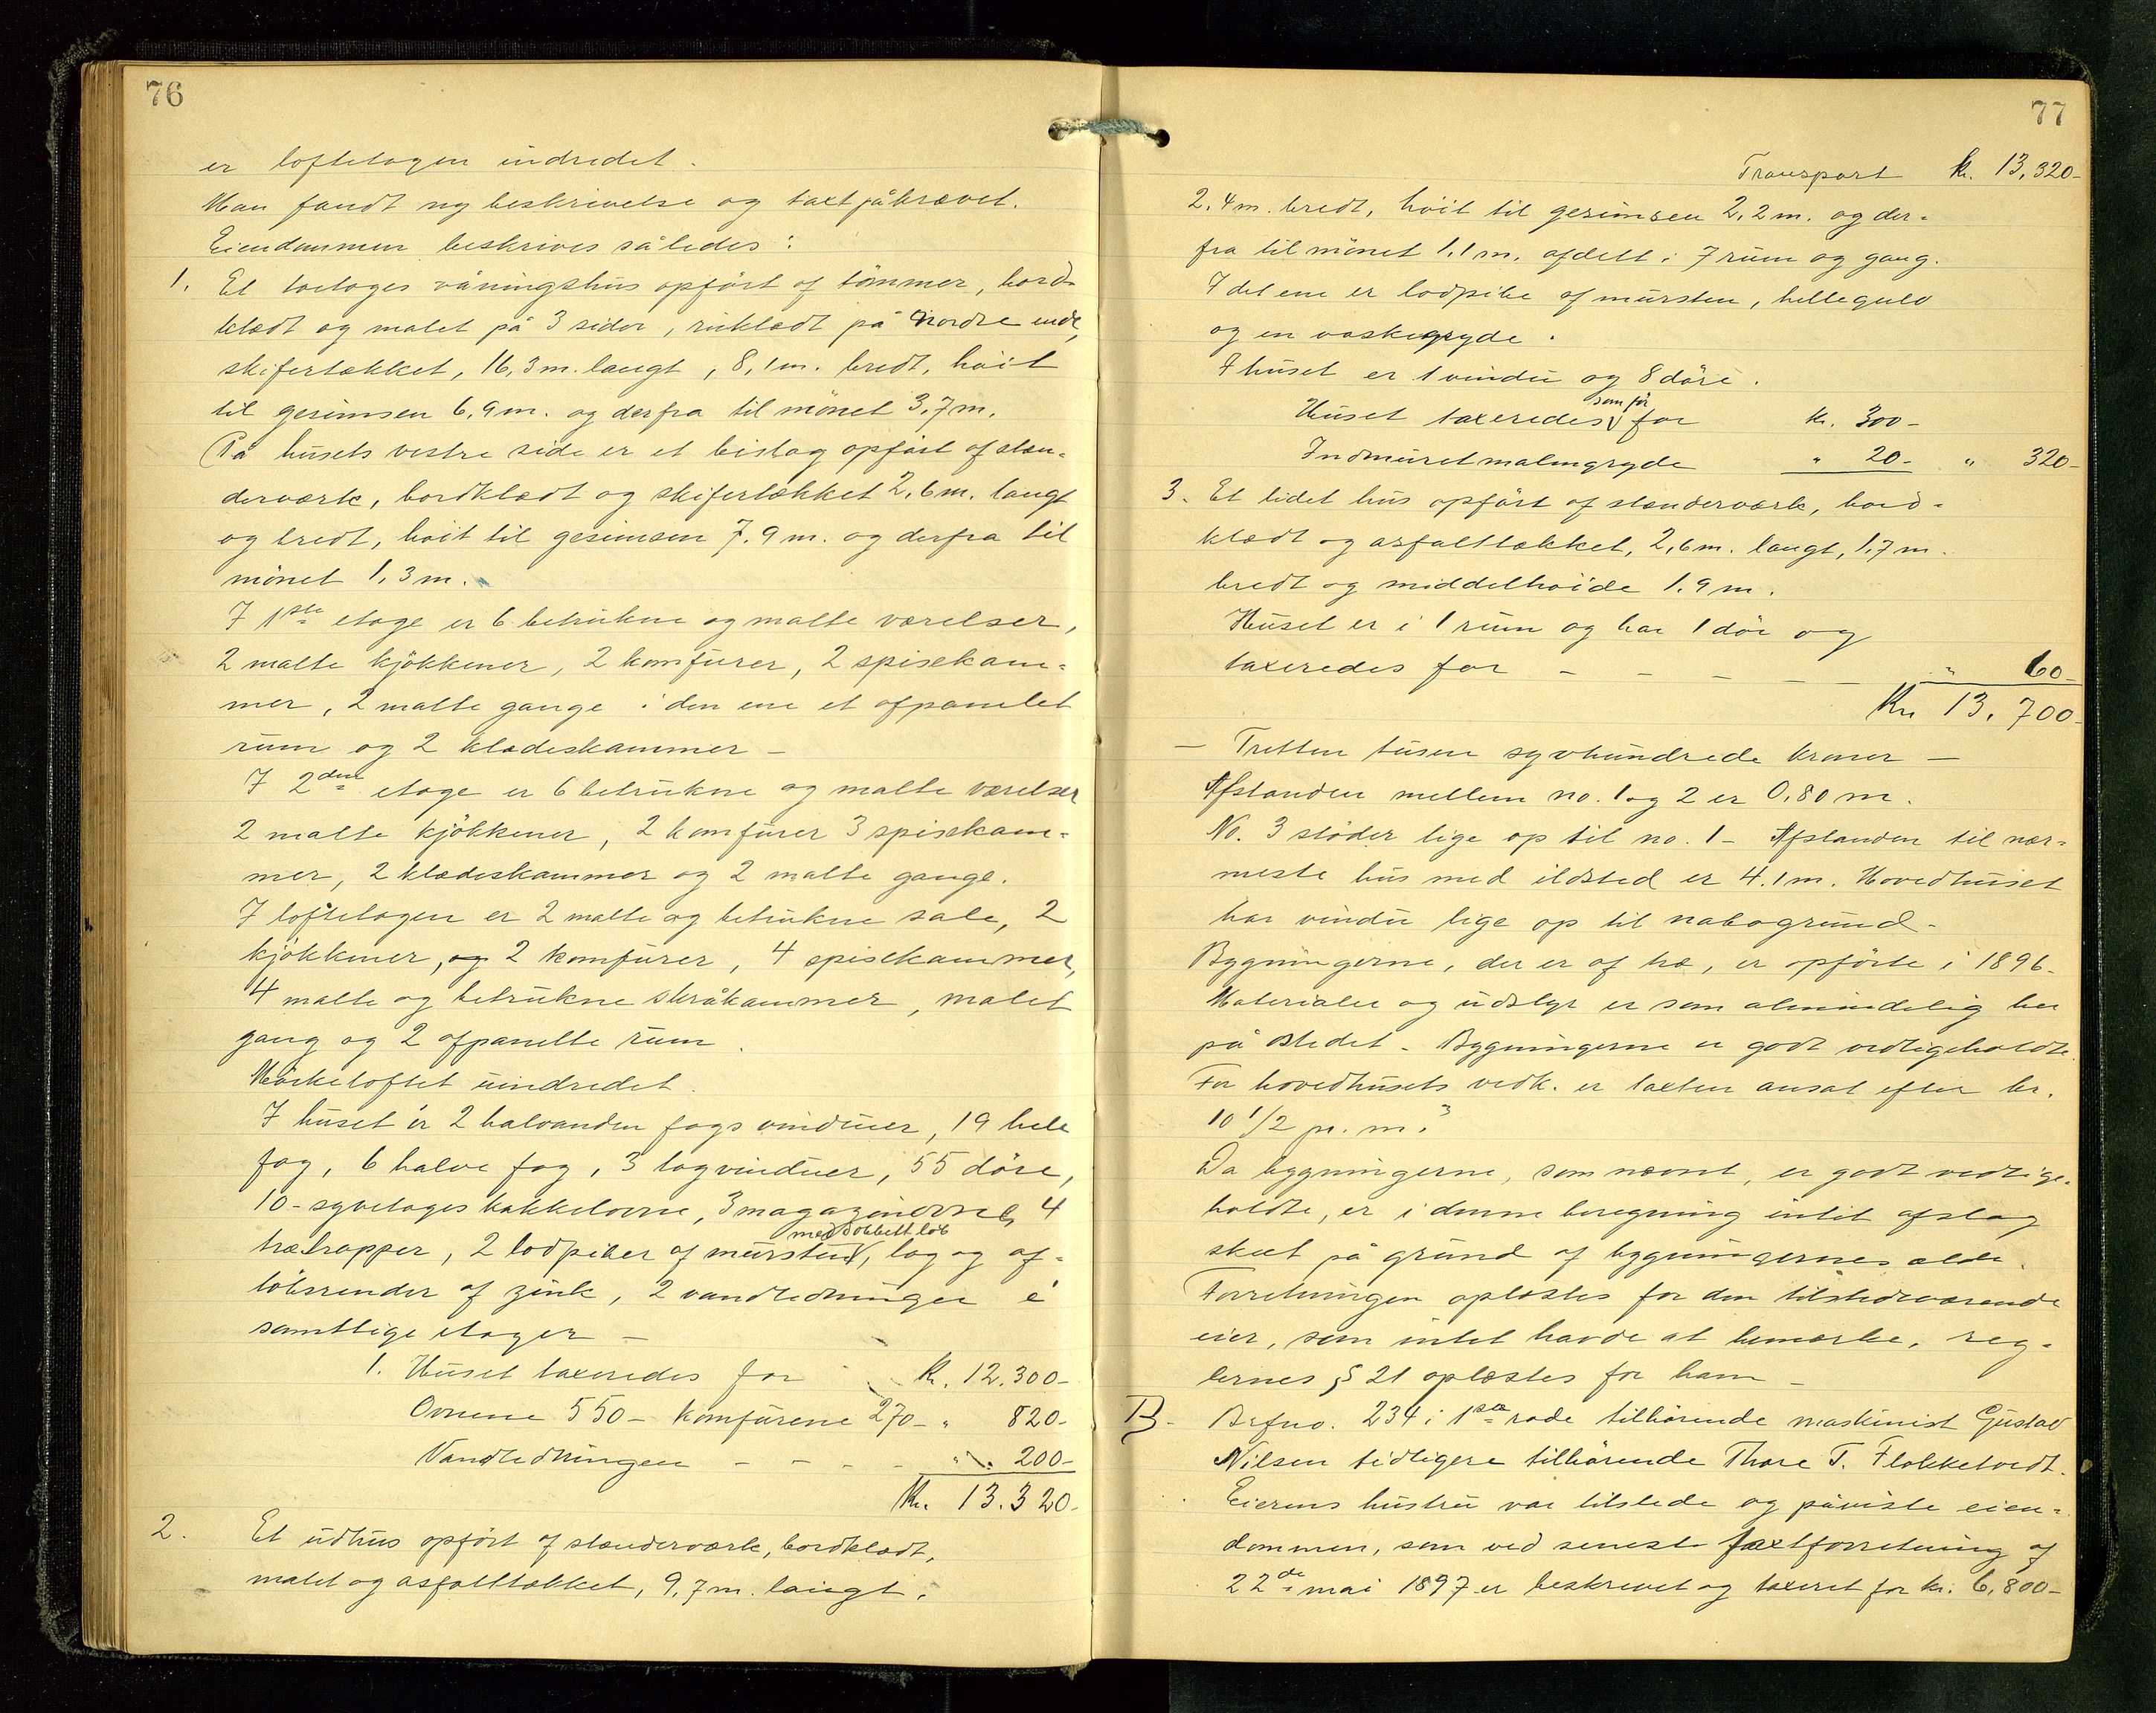 76
er loftetagen indredet.
Man fandt ny beskrivelse og taxt påkrævet.
Eiendommen beskrives således:
1. Et toetages våningshus opført af tømmer, bord-
klædt og malet på 3 sider, riklædt på nordre ende,
skifertækket, 16,3 m. langt, 8,1 m. bredt, høit
til gesimsen 6,9 m. og derfra til mønet 3,7 m.
På husets vestre side er et bislag opført af stæn-
derværk, bordklædt og skifertækket 2,6 m. langt
og bredt, høit til gesimsen 7.9 m. og derfra til
mønet 1,3 m.
I 1ste etage er 6 betrukne og malte værelser,
2 malte kjøkkener, 2 komfurer, 2 spisekam-
mer, 2 malte gange i den ene et afpanelet
rum og 2 klædeskammer –
I 2den etage er 6 betrukne og malte værelser
2 malte kjøkkener, 2 komfurer 3 spisekam-
mer, 2 klædeskammer og 2 malte gange.
I loftetagen er 2 malte og betrukne sale, 2
kjøkkener, og 2 komfurer, 4 spisekammer,
4 malte og betrukne skråkammer, malet
gang og 2 afpanelte rum.
Mørkeloftet uindredet.
I huset er 2 halvanden fags vinduer, 19 hele
fag, 6 halve fag, 3 tagvinduer, 55 døre,
10 - syvetages kakkelovne, 3 magazinovne, 4
med dobbelt løb
trætrapper, 2 lodpiber af mursten, tag og af-
løbsrender af zink, 2 vandledninger i
samtlige etager –
1. Huset taxeredes for kr. 12.300-
Ovnene 550 – komfurene 270 – " 820-
Vandledningen – – – – " 200-
Kr. 13.320-
2. Et udhus opført af stænderværk, bordklædt,
malet og asfalttækket, 9,7 m. langt,
77
Transport kr. 13,320-
2.4 m. bredt, høit til gesimsen 2,2 m. og der-
fra til mønet 1,1 m. afdelt i 7 rum og gang.
I det ene er lodpibe af mursten, hellegulv
og en vaskegryde.
I huset er 1 vindu og 8 døre.
som før
Huset taxeredes for kr. 300-
Indmuret malmgryde " 20- " 320-
3. Et lidet hus opført af stænderværk, bord-
klædt og asfalttækket, 2,6 m. langt, 1,7 m.
bredt og middelhøide 1.9 m.
Huset er i 1 rum og har 1 dør og
taxeredes for – – – – – " 60-
Kr. 13.700-
– Tretten tusen syvhundrede kroner –
Afstanden mellem no. 1 og 2 er 0,80 m.
No. 3 støder lige op til no. 1 – Afstanden til nær-
meste hus med ildsted er 4.1 m. Hovedhuset
har vindu lige op til nabogrund –
Bygningerne, der er af træ, er opførte i 1896.
Materialer og udstyr er som almindelig her
på stedet – Bygningerne er godt vedligeholdte.
For hovedhusets vedk. er taxten ansat efter kr.
10 1/2 pr. m.3
Da bygningerne, som nævnt, er godt vedlige-
holdte, er i denne beregning intet afslag
skeet på grund af bygningernes ælde.
Forretningen oplæstes for den tilstedeværende
eier, som intet havde at bemærke. reg-
lernes § 21 oplæstes for ham –
B. Brfno. 234 i 1ste rode tilhørende maskinist Gustav
Nilsen tidligere tilhørende Thore T. Flokketvedt.
Eierens hustru var tilstede og påviste eien-
dommen, som ved seneste taxtforretning af
22de mai 1897 er beskrevet og taxeret for kr. 6,800-